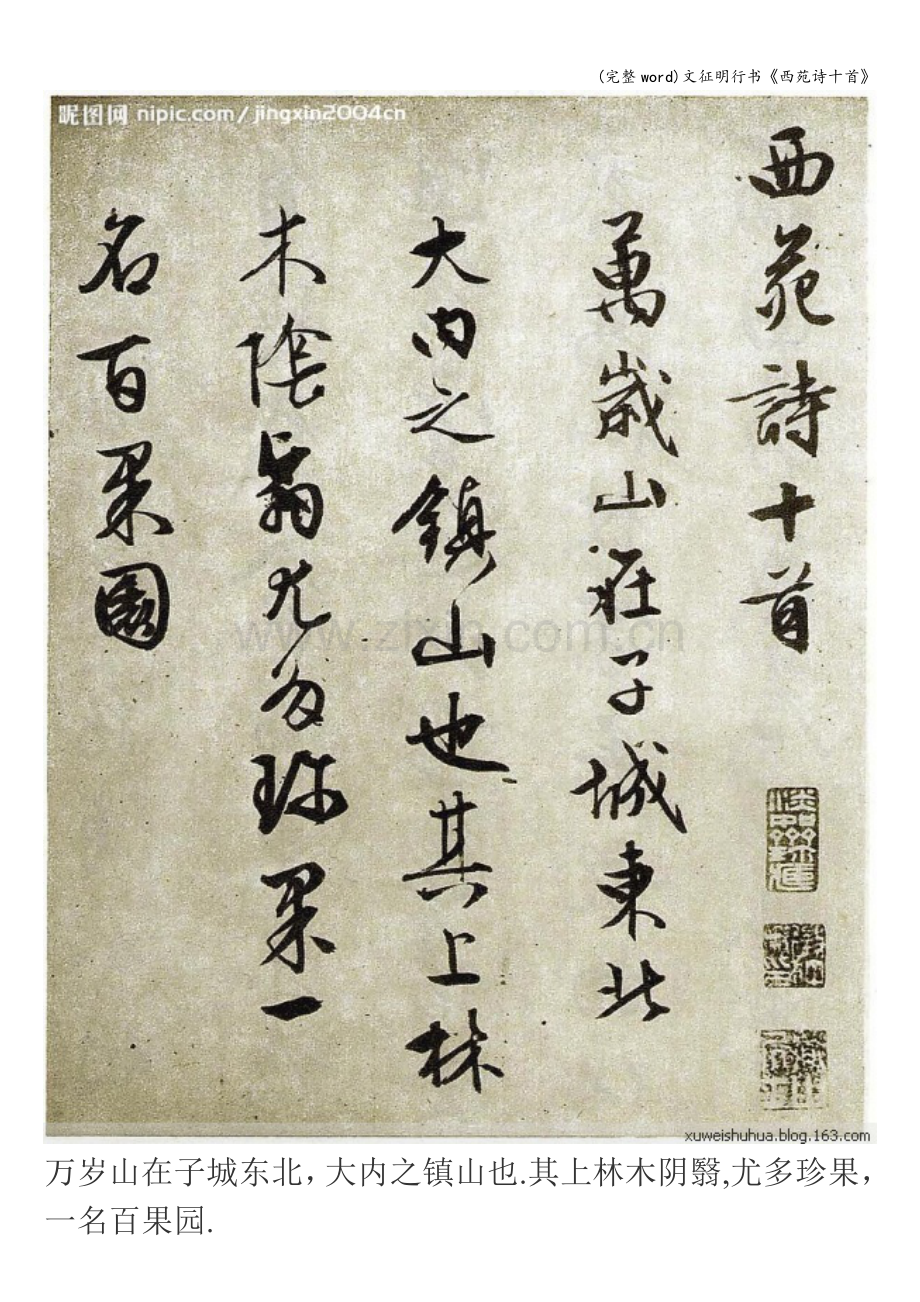 (完整word)文征明行书《西苑诗十首》
昵图网 nipic.com/jingxin2004cn
西苑詩十首
萬歲山在子城東北
大内之鎮山也其上林
木陰翳尤多珍果一
名百果園
www.zixin.com.cn
xuweishuhua.blog.163.com
万岁山在子城东北，大内之镇山也.其上林木阴翳,尤多珍果，
一名百果园.